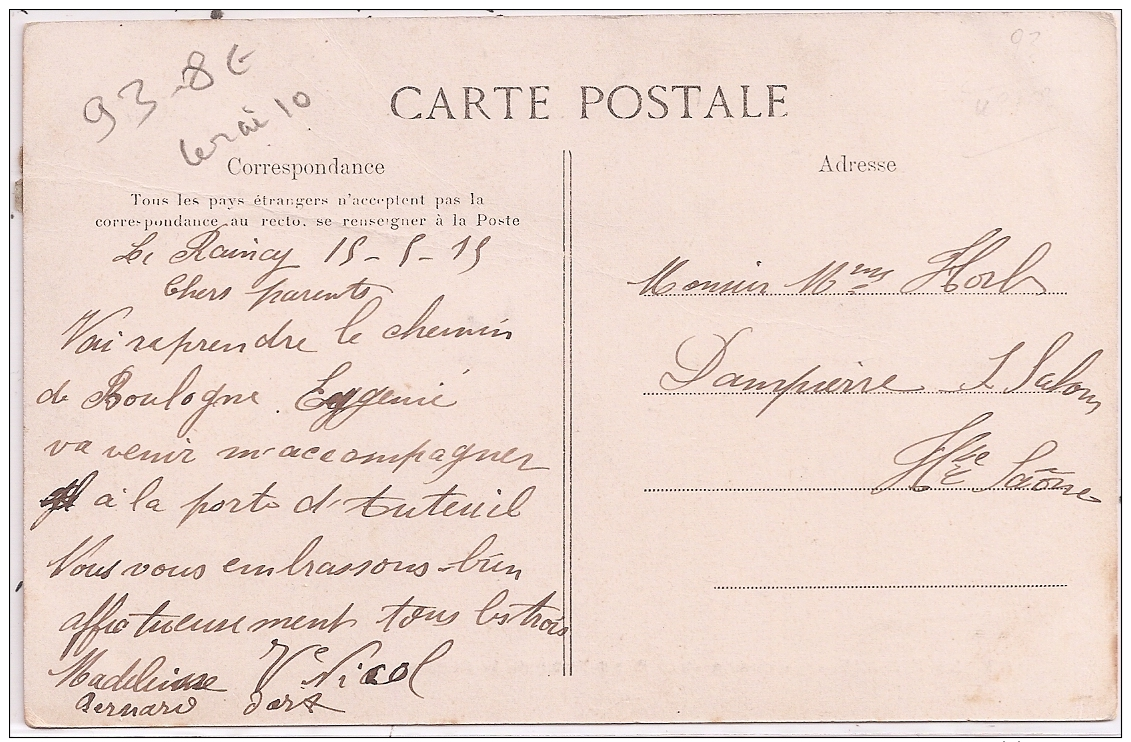 93-8E
CARTE POSTALE
Correspondance
Tous les pays étrangers n'acceptent pas la
correspondance au recto. se renseigner à la Poste
Le Raincy 15-5-15
Chers parents
Vai raprendre le chemin
de Boulogne Eggenié
va venir m'accompagner
à la porte d'Auteuil
Nous vous embrassons bien
affectueusement tous les trois
Madeleine Ve Nicol
Bernard dort
Adresse
Monsieur Mme Horb
Dampierre S Salon
Hte Saône